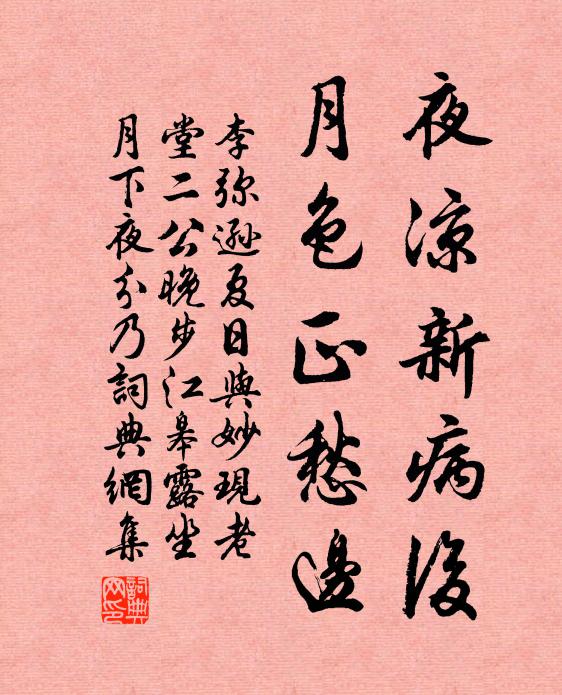 夜凉新病後
月色正愁邊
李弥遜夏日與妙現老
堂二公晚步江皋露坐
月下夜分乃詞典網集
詞典
网印